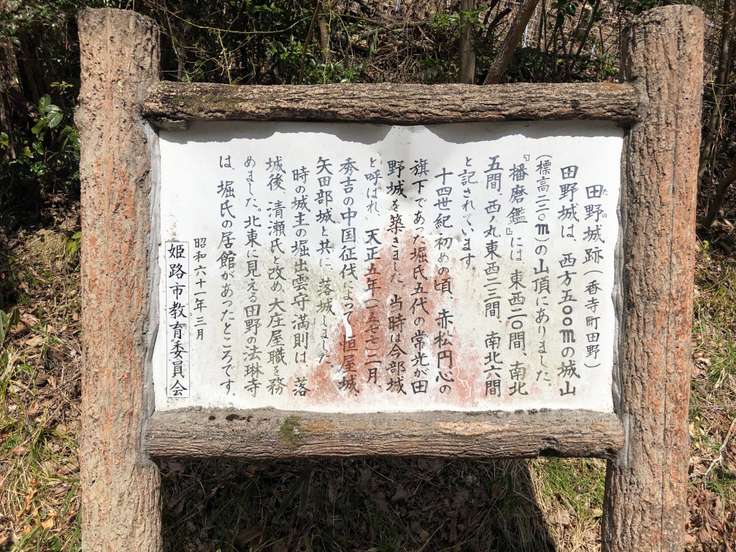 田野城跡（香寺町田野）
田野城は、西方五〇〇mの城山
（標高二二〇m）の山頂にありました。
『播磨鑑』には、東西二〇間、南北
五間、西ノ丸東西一三間、南北六間
と記されています。
十四世紀初めの頃、赤松円心の
旗下であった堀氏五代の常光が田
野城を築きました。当時は今部城
と呼ばれ、天正五年（一五七七）二月、
秀吉の中国征伐によって恒屋城、
矢田部城と共に、落城しました。
時の城主の堀出雲守満則は、落
城後、清瀬氏と改め、大庄屋職を務
めました。北東に見える田野の法琳寺
は、堀氏の居館があったところです。
昭和六十一年三月
姫路市教育委員会